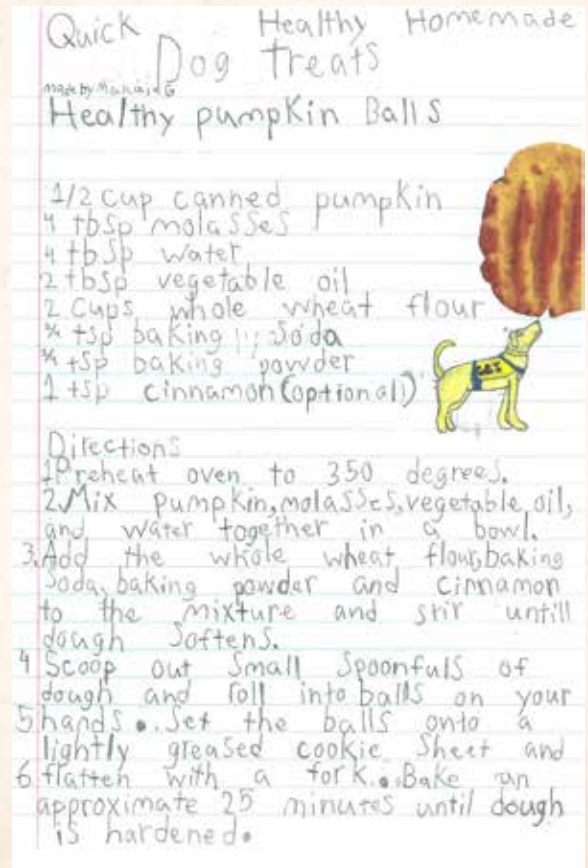 Quick Healthy Homemade
Dog Treats
made by
Healthy pumpkin Balls
1/2 cup canned pumpkin
4 tbsp molasses
4 tbsp water
2 tbsp vegetable oil
2 Cups whole wheat flour
¾ tsp baking soda
¾ tsp baking powder
1 tsp cinnamon (optional)
Directions
1 Preheat oven to 350 degrees.
2. Mix pumpkin, molasses, vegetable oil,
and water together in a bowl.
3. Add the whole wheat flour, baking
Soda, baking powder and cinnamon
to the mixture and stir untill
dough softens.
4 Scoop out small spoonfuls of
dough and roll into balls on your
5 hands. Set the balls onto a
lightly greased cookie sheet and
6 flatten with a fork. Bake an
approximate 25 minutes until dough
is hardened.